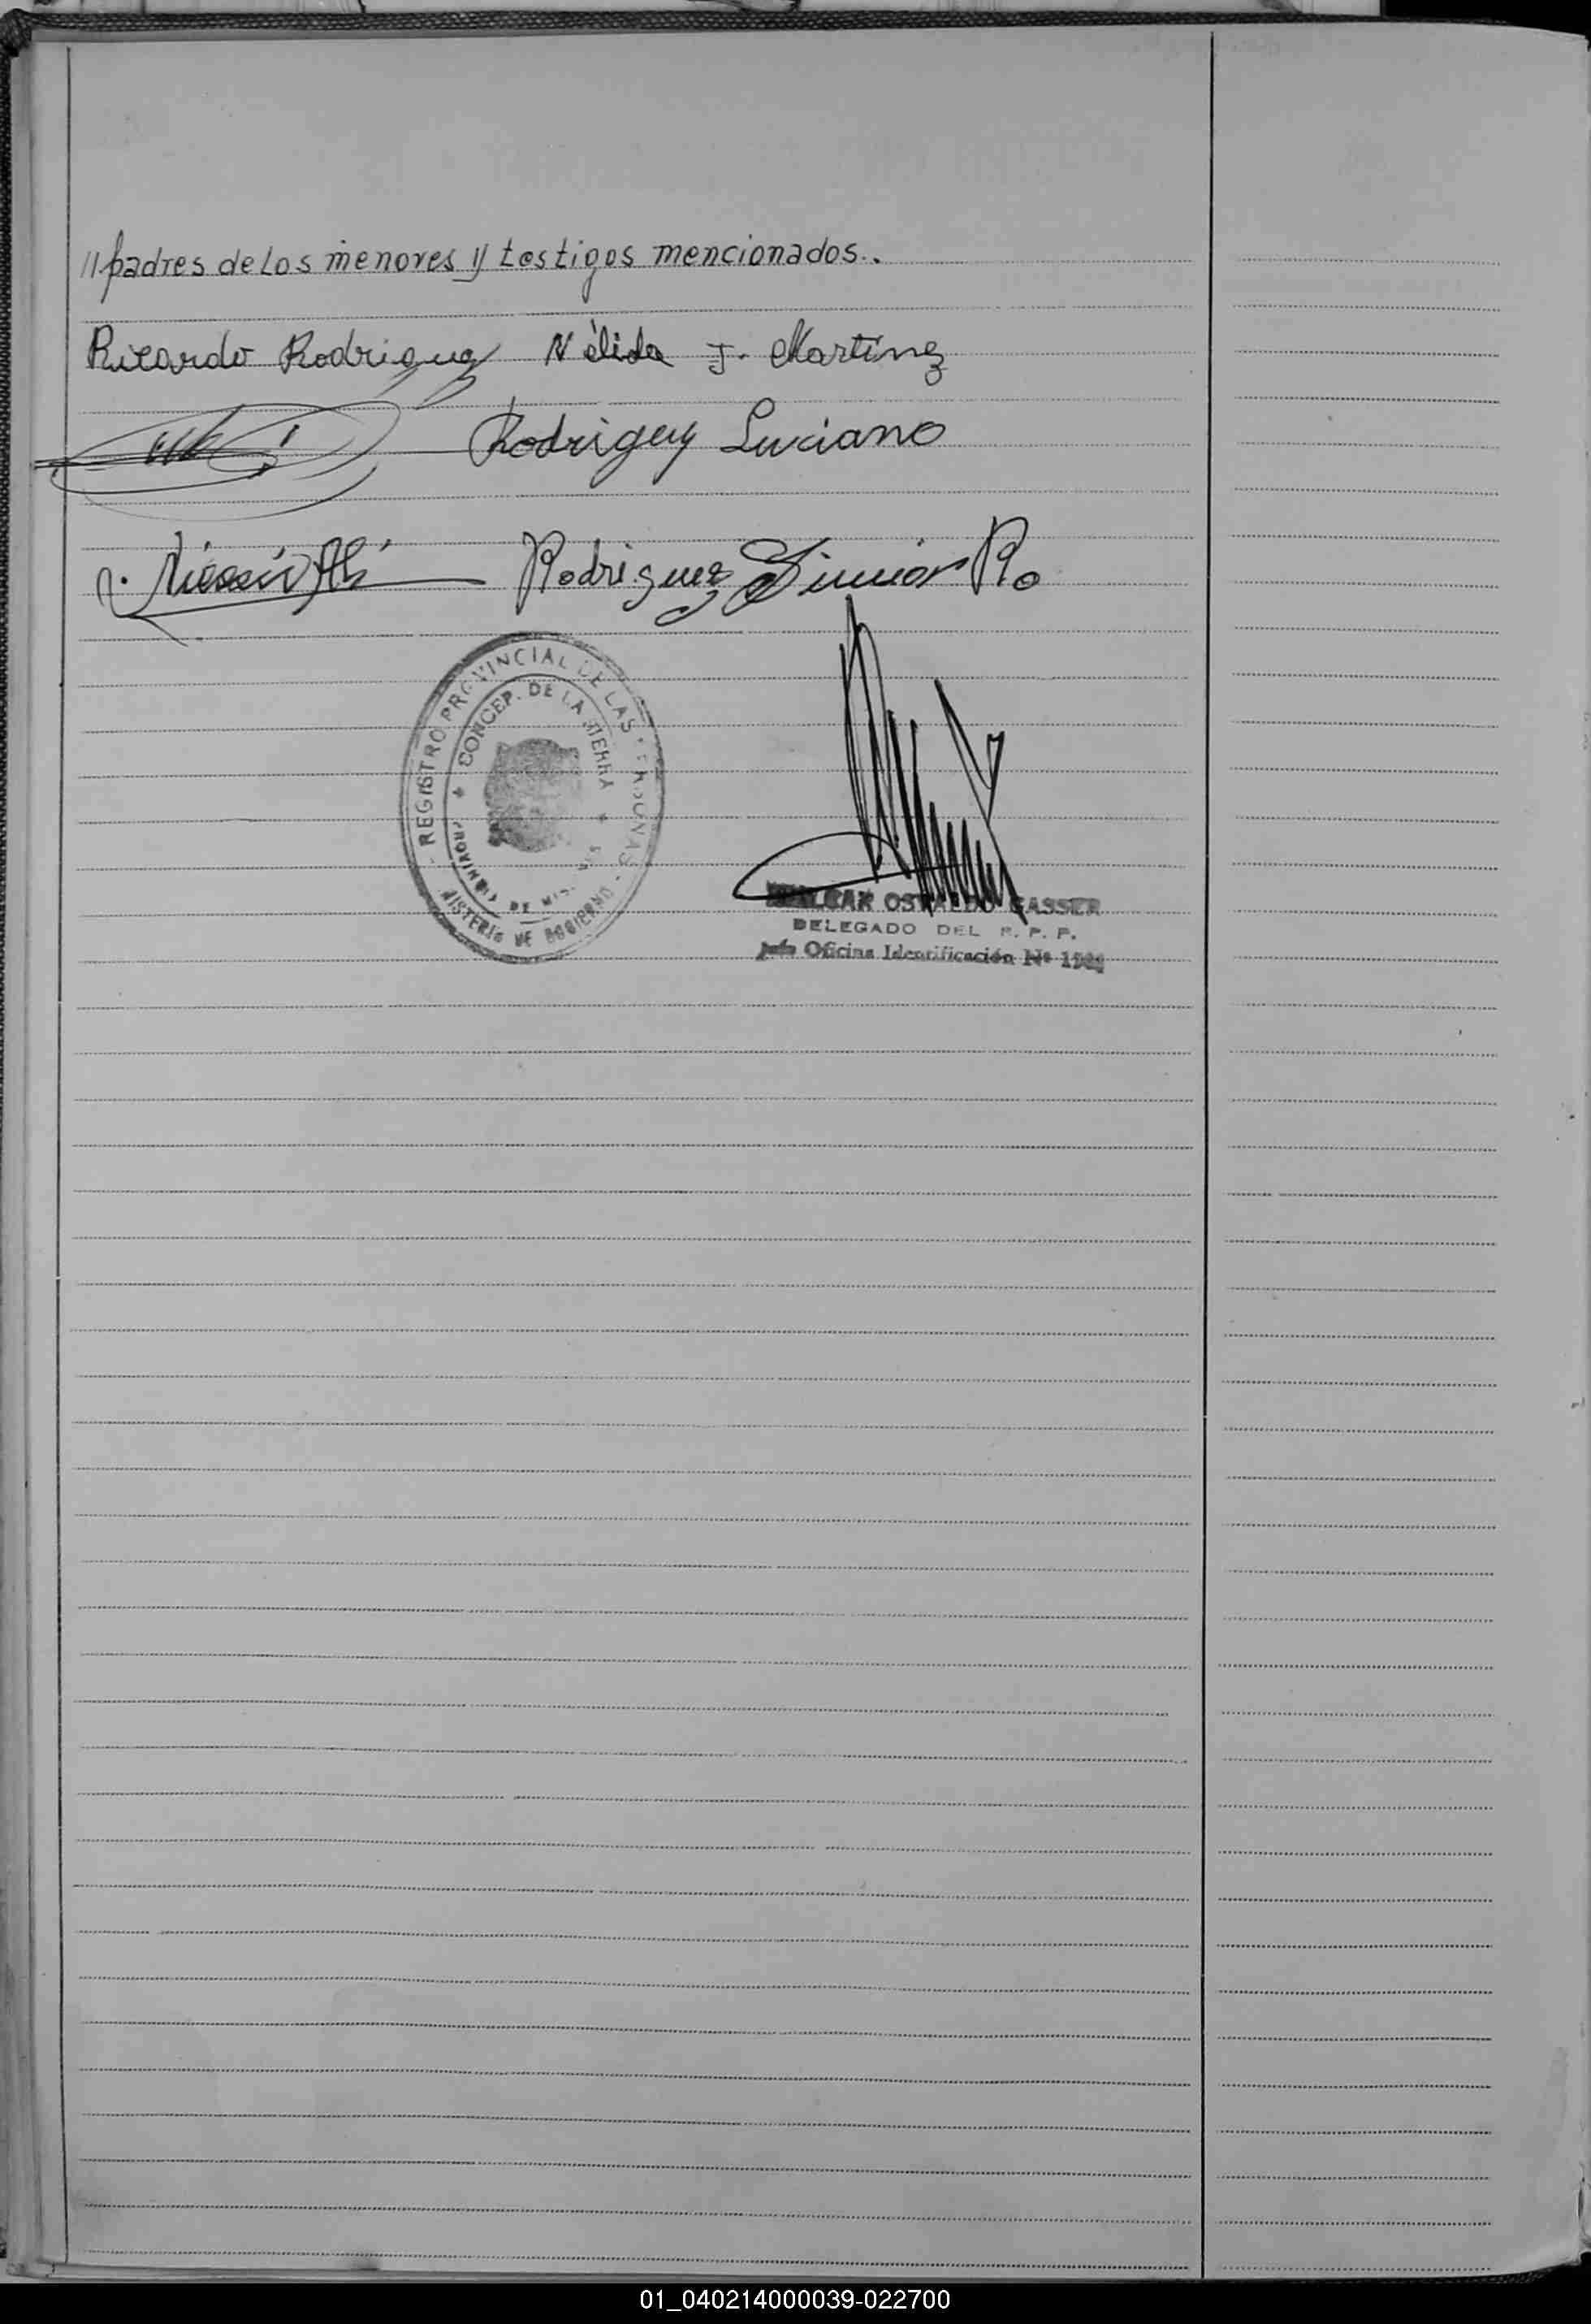 //padres de Los menores y testigos mencionados..
Ricardo Rodriguez Nélida J. Martinez
Rodriguez Luciano
Rodriguez
REGISTRO PROVINCIAL DE LAS PERSONAS
CONCEP. DE LA SIERRA
PROVINCIA DE MIS
MINISTERIO DE GOBIERNO
OSVALDO GASSER
DELEGADO DEL R. P. P.
Jefe Oficina Identificación Nº
01_040214000039-022700